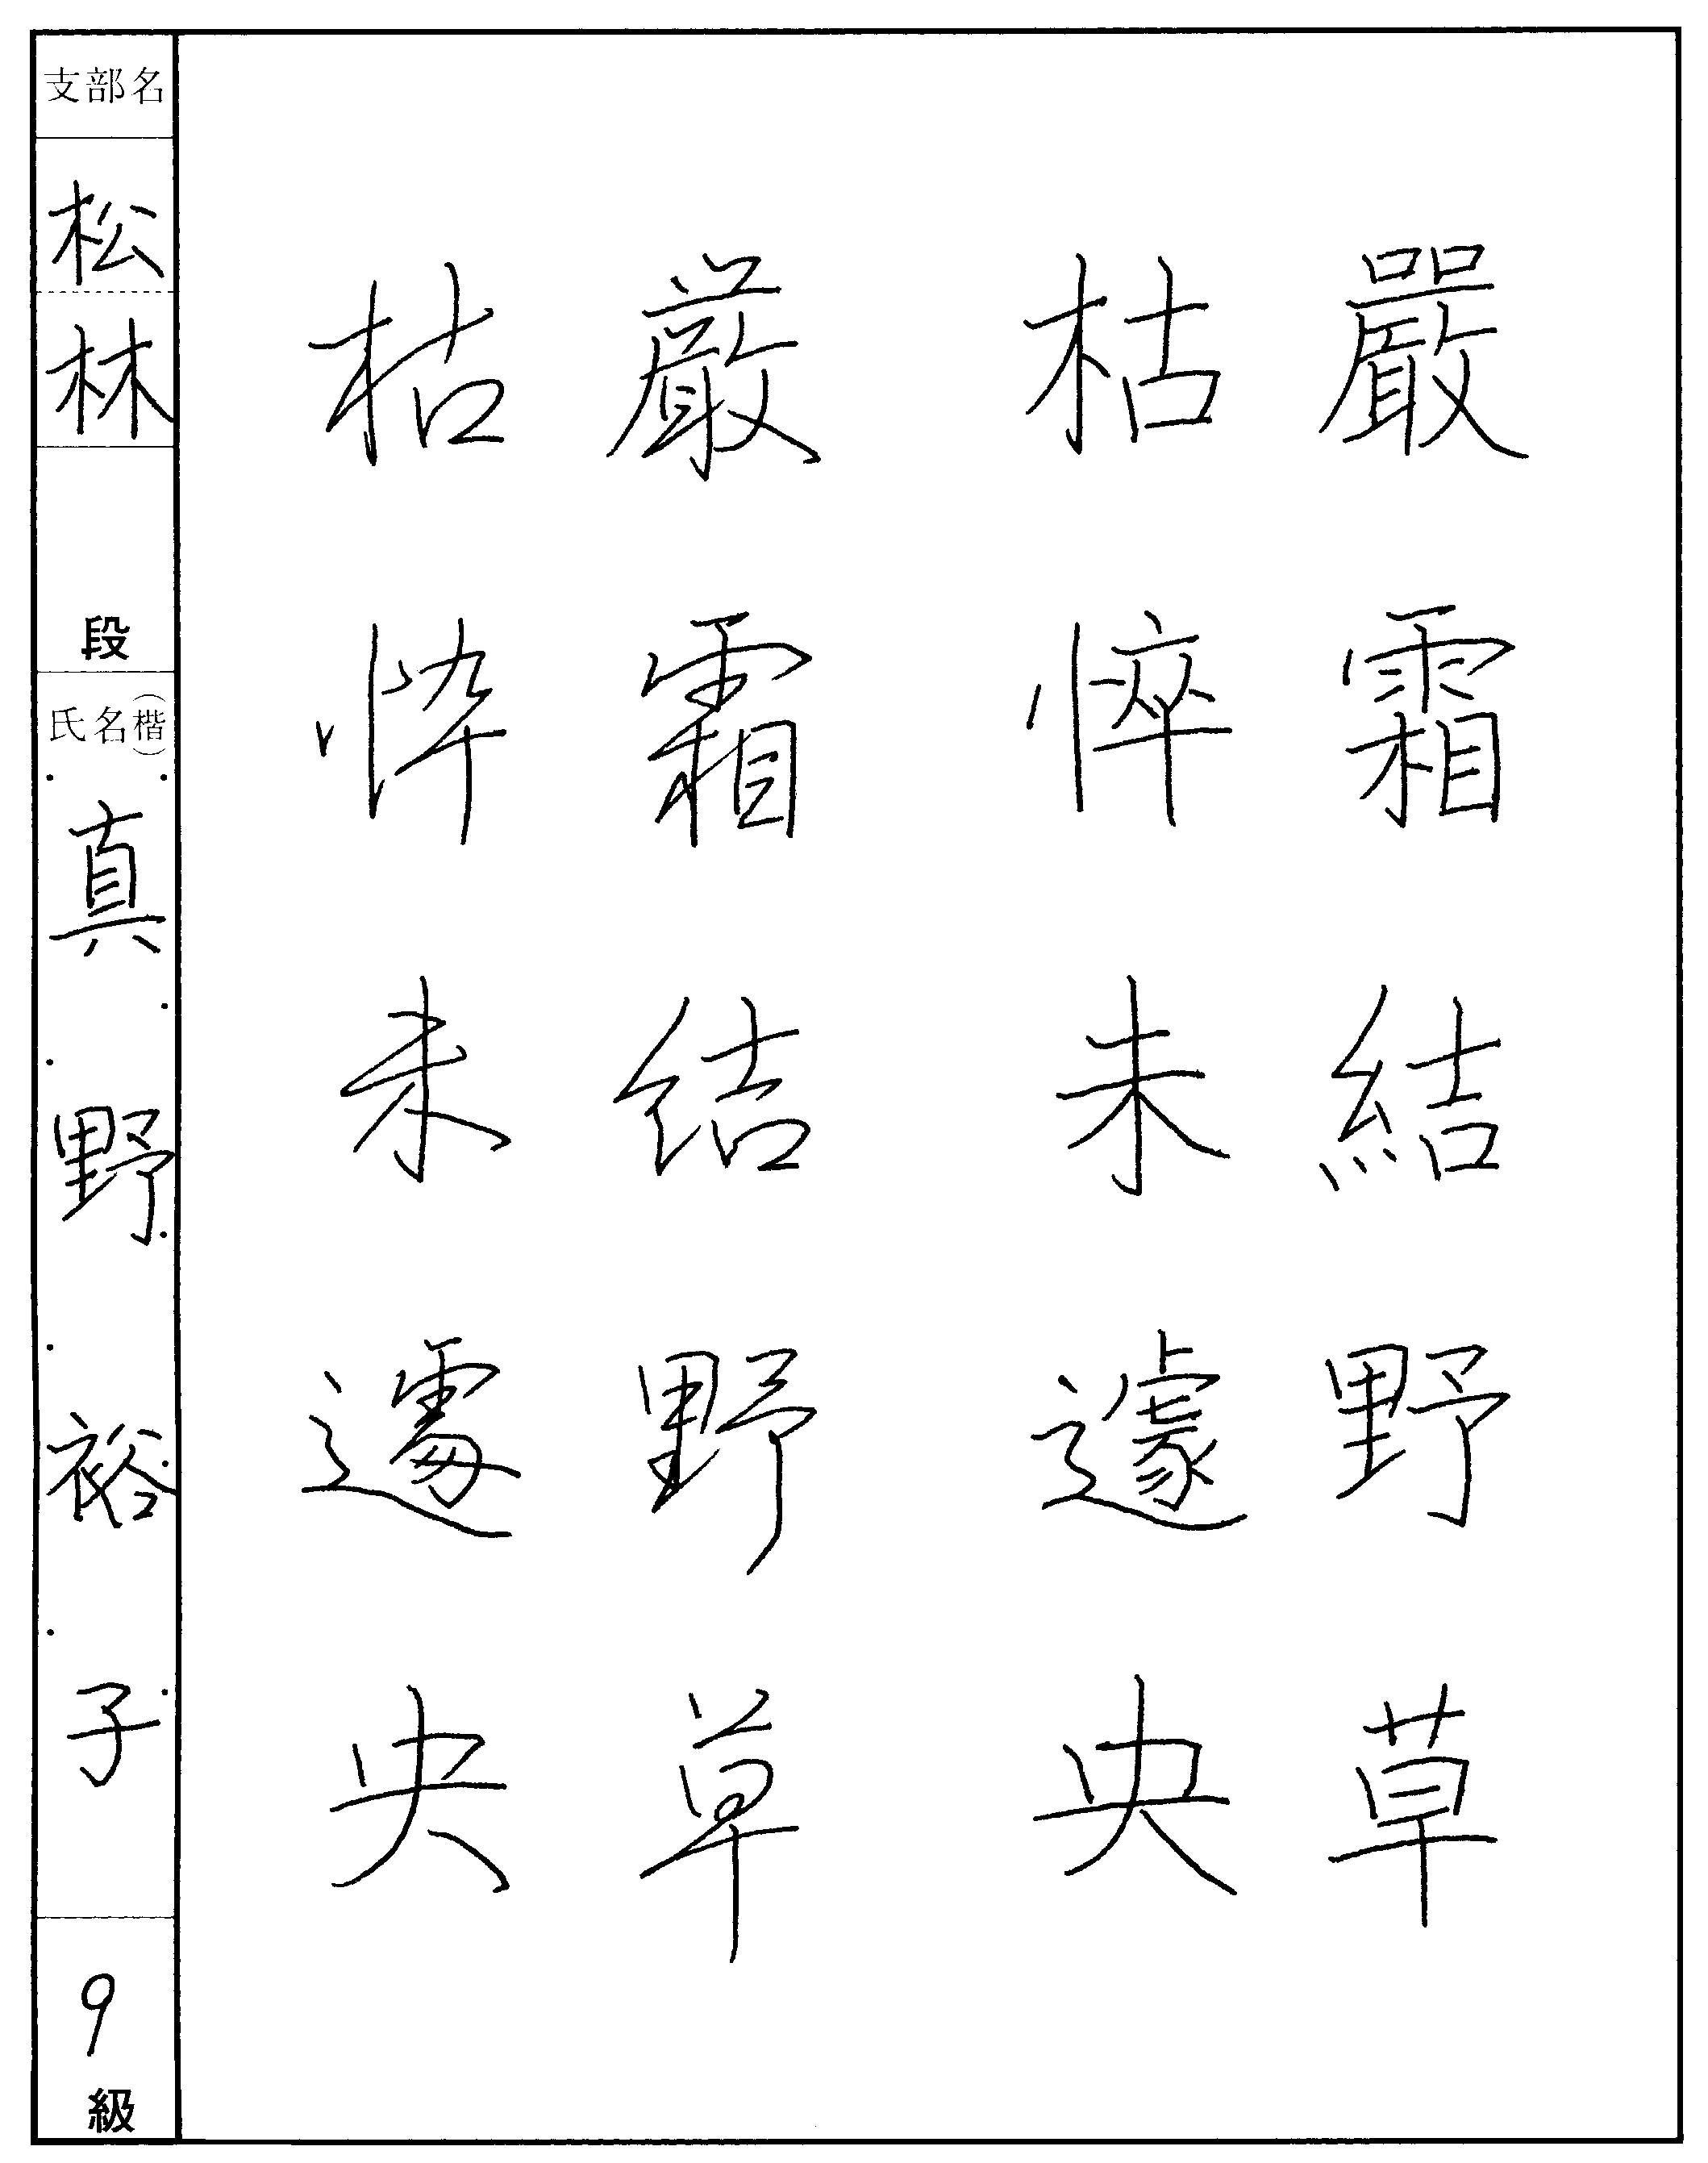 嚴霜結野草
枯悴未遽央
厳霜結野草
枯悴未遽央
支部名
松林
段
氏名(楷)
真野裕子
9級